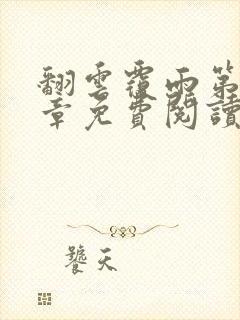 翻雲覆雨第
章免費閱讀
饕天